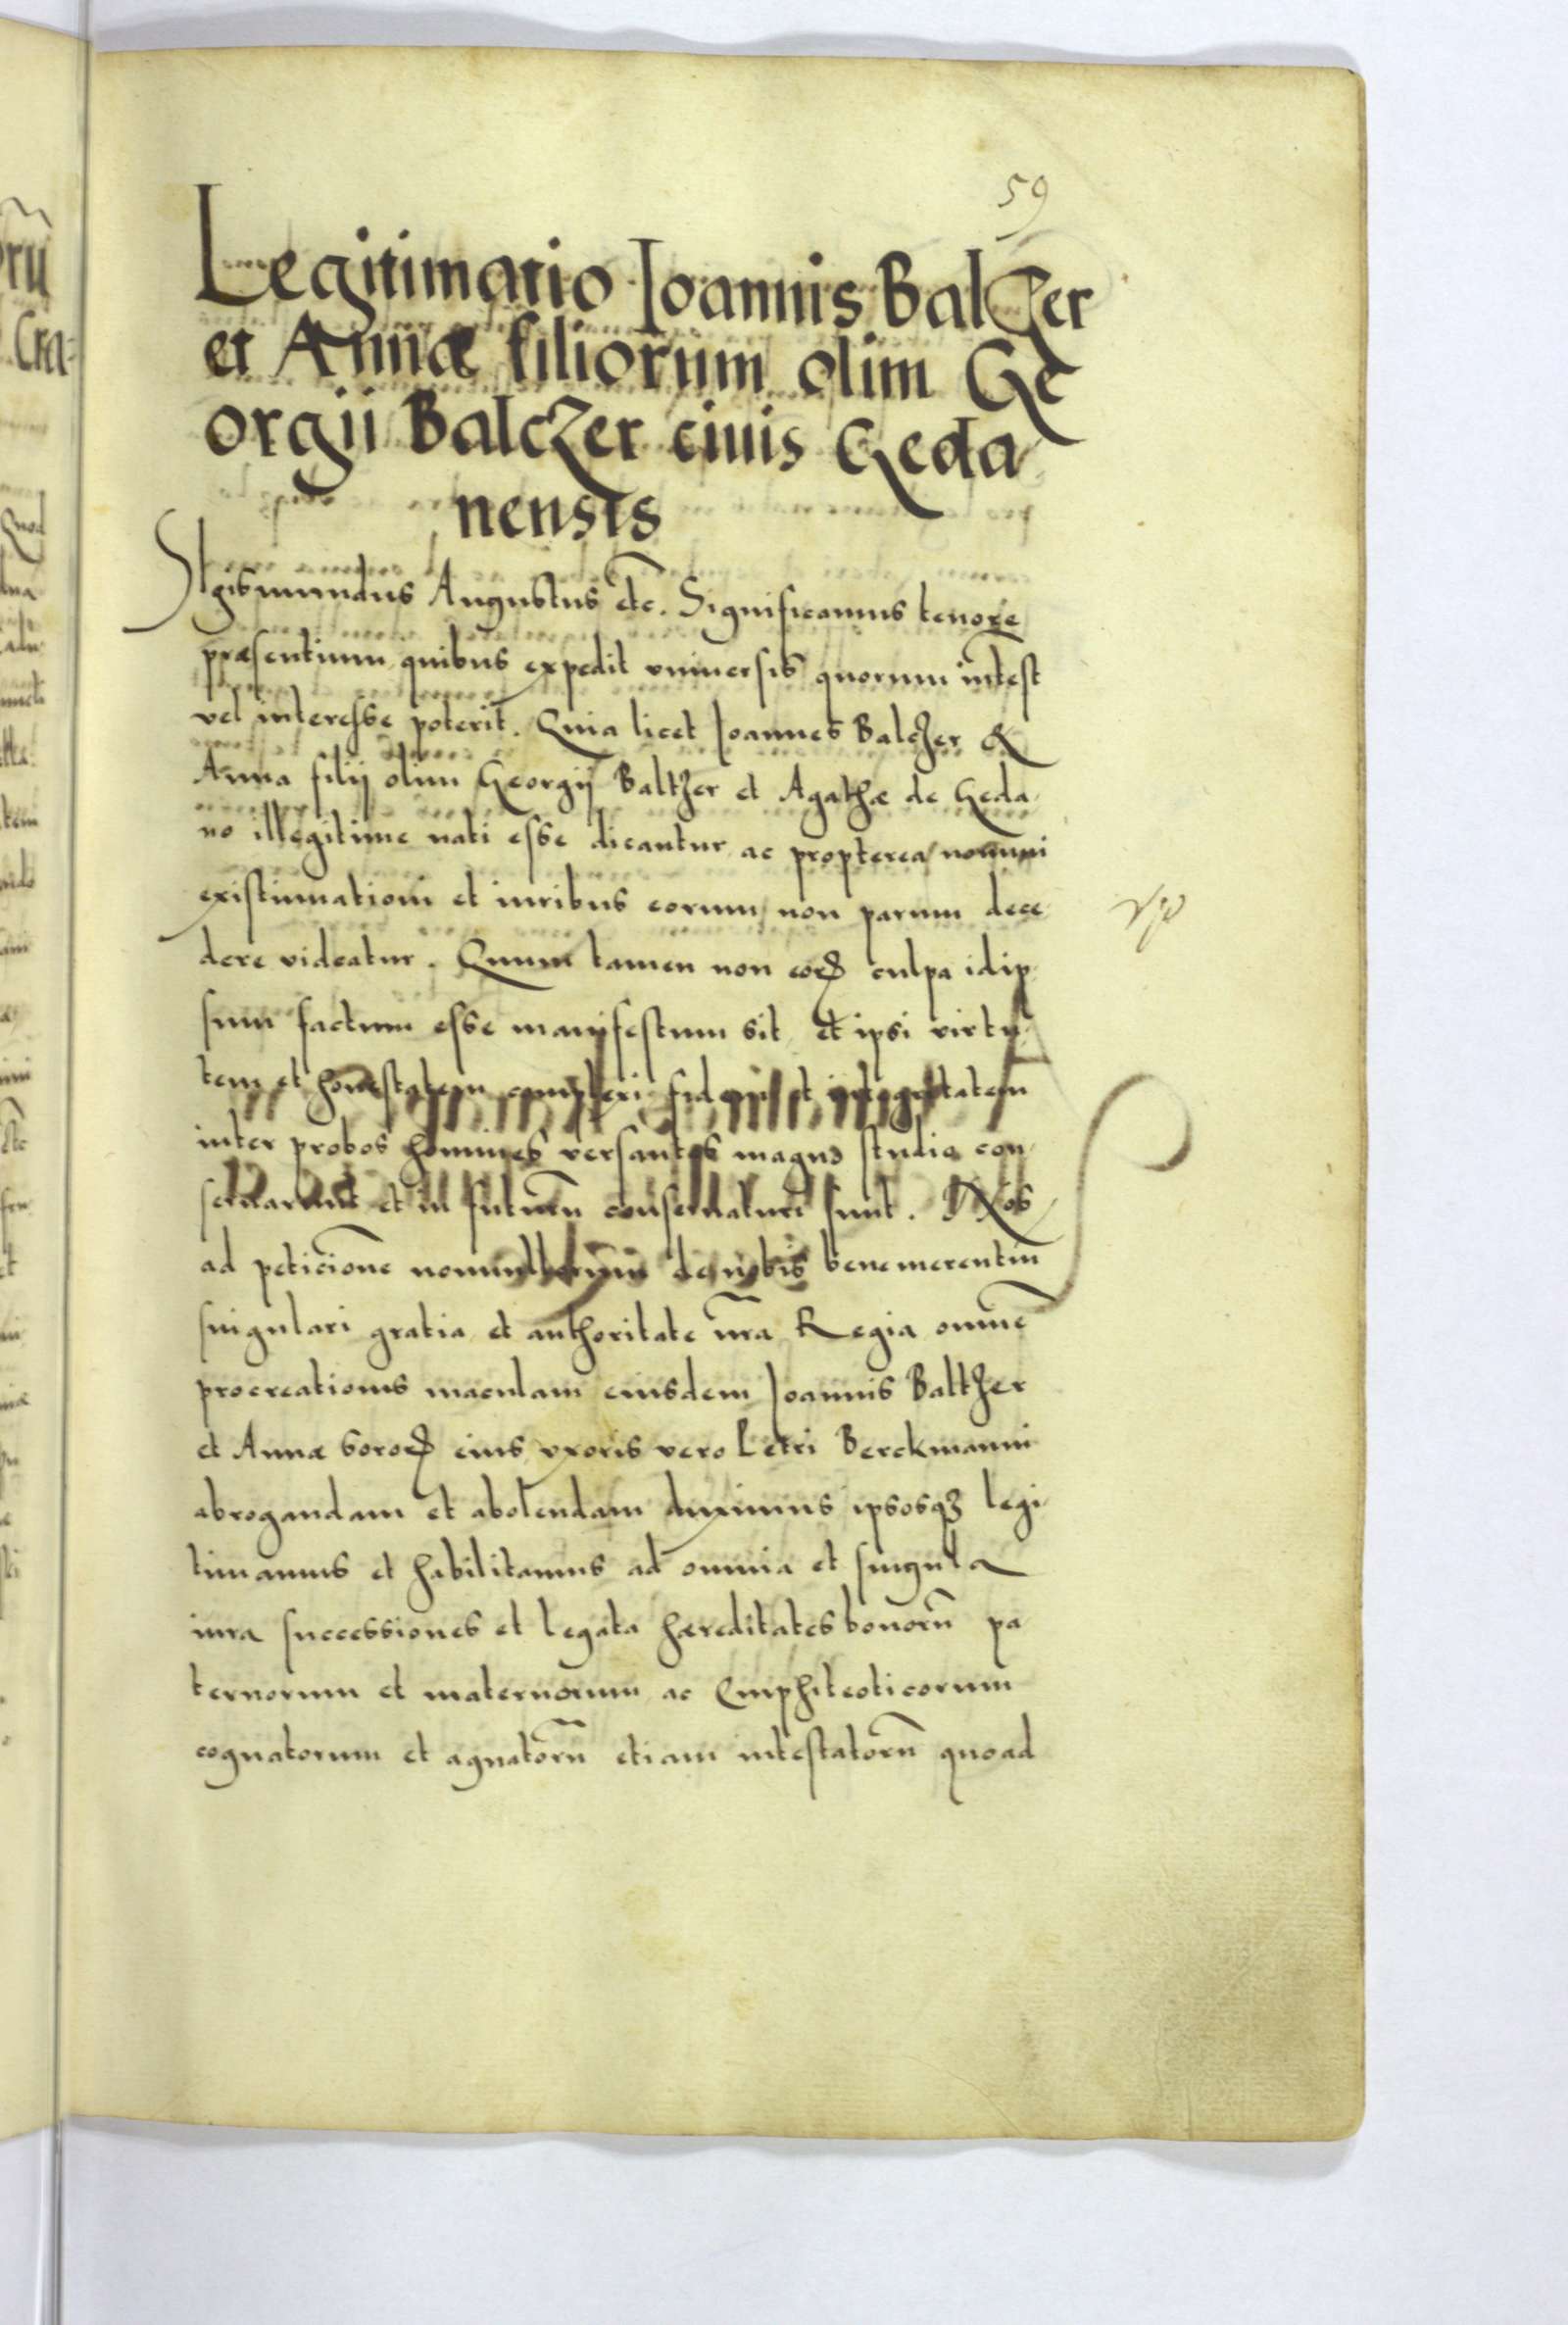 59
Legitimatio Ioannis Balczer
et Annæ filiorum olim Ge
orgii Balczer civis Geda
nensis
Sigismundus Augustus etc. Significamus tenore
præsentium quibus expedit vniuersis quorum intest
vel interesse poterit. Quia licet Ioannes Balczer &
Anna filij olim Georgij Baltzer et Agathæ de Geda
no illegitime nati esse dicantur ac propterea nomini
existimationi et iuribus eorum non parum dece
dere videatur. Quum tamen non eorꝝ culpa idip
sum factum esse manifestum sit et ipsi virtu
tem et honestatem fidem et integritatem
inter probos homines versantes magno studio con
seruarunt et in futurū conseruaturi sunt. Nos
ad peticionē nonnullorum de nobis benemerentiū
singulari gratia et authoritate nr̄a Regia omnē
procreationis maculam eiusdem Ioannis Baltzer
et Annæ sororꝝ eius vxoris vero Petri Berckmanni
abrogandam et abolendam duximus ipsosqꝫ legi
timamus et habilitamus ad omnia et singula
iura successiones et legata hæreditates bonorū pa
ternorum et maternorum ac Emphiteoticorum
cognatorum et agnatorū etiam intestatorū quoad